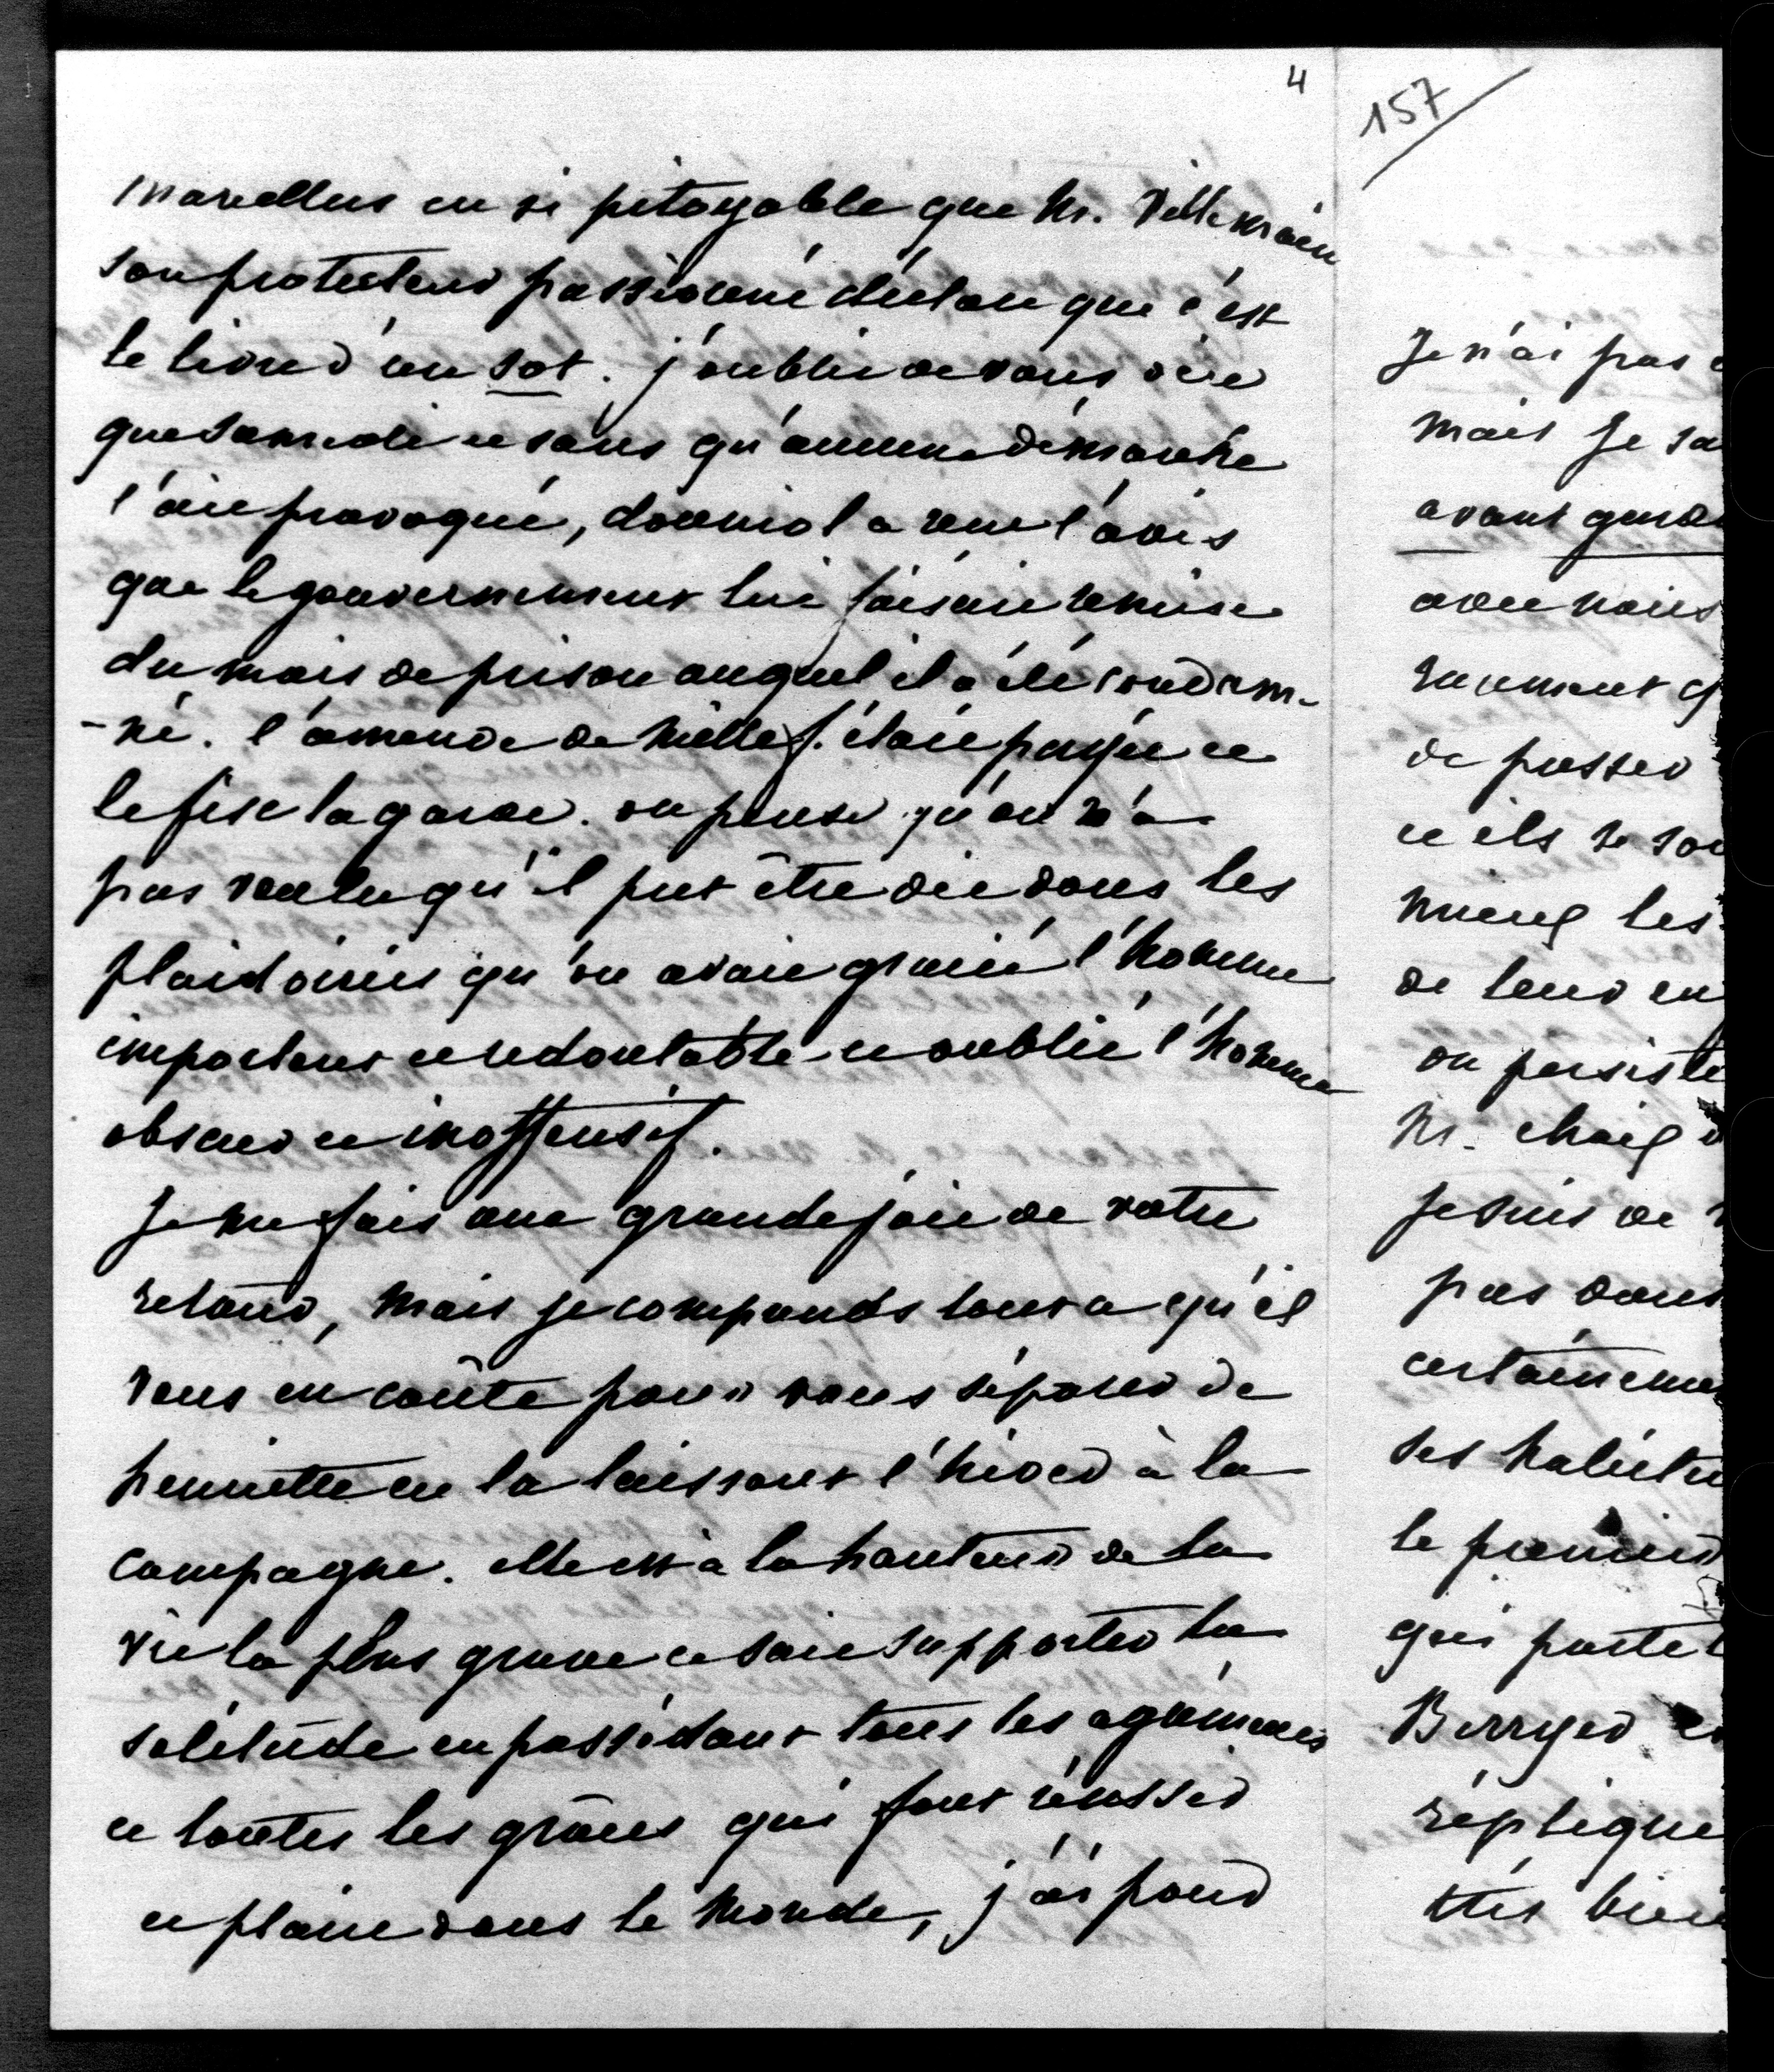 4
marcellus est si pitoyable que Mr. Villemain
son protecteur passionné déclare que c'est
le livre d'un sot. j'oublie de vous dire
que samedi et sans qu'aucune démarche
l'ait provoqué, douniol a reçu l'avis
que le gouvernement lui faisait remise
du mois de prison auquel il a été condam-
-né. l'amende de mille f. était payée et
le fisc la garde. on pense qu'on n'a
pas voulu qu'il put être dit dans les
plaidoiries qu'on avait gracié l'homme
important et redoutable et oublié l'homme
obscur et inoffensif.
Je me fais une grande joie de votre
retour, mais je comprends tout ce qu'il
vous en coûte pour vous séparer de
henriette en la laissant l'hiver à la
campagne. elle est à la hauteur de la
vie la plus grave et sait supporter la
solitude en possédant tous les agréments
et toutes les grâces qui font réussir
et plaire dans le monde, j'ai pour
157
Je n'ai pas
mais je
avant
avec nous
de passer
et ils se
mieux les
de leur
on persiste
Mr.
je suis de
pas dans
ses
le premier
qui porte
Berryer
réplique
très